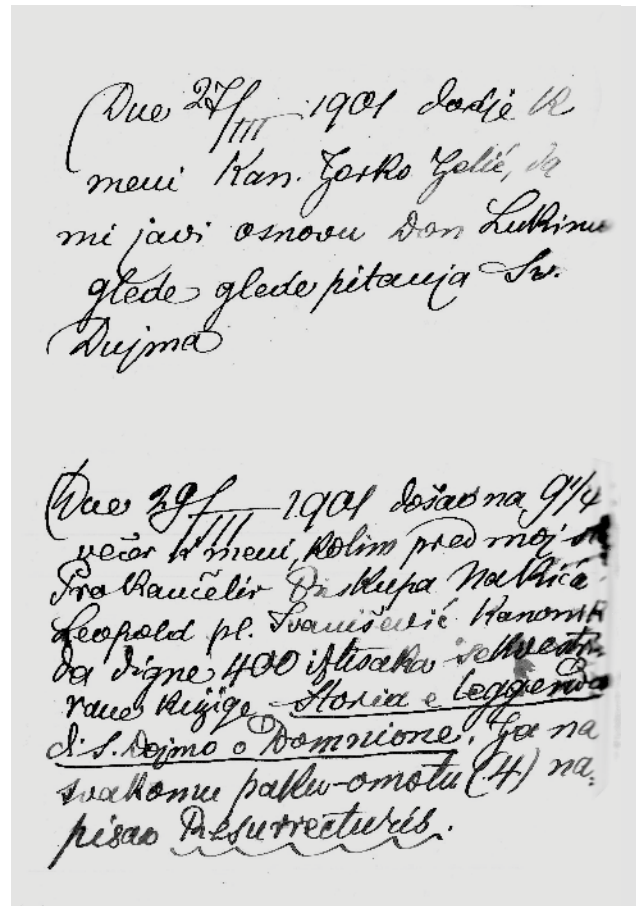 Dne 27/III 1901 dodje k
meni Kan. Žarko Jelić, da
mi javi osnovu Don Lukinu
glede glede pitanja Sv.
Dujma
Dne 29/III 1901 došao na 9 1/4
večer k meni, kolim pred moj
Prokančelir Biskupa Nakića
Leopold pl. Ivanišević Kanonik
da digne 400 iztisaka sekvestri
rane knjige Storia e Leggenda
di S. Dojmo o Domnione. Ja na
svakomu paku-omotu (4) na,
pisao Resurrecturis.